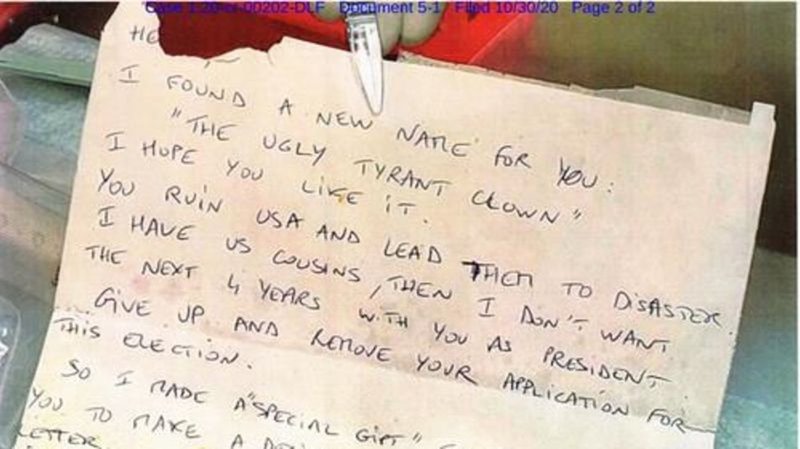 Case 1:20-cr-00202-DLF Document 5-1 Filed 10/30/20 Page 2 of 2
HE
I FOUND A NEW NAME FOR YOU:
"THE UGLY TYRANT CLOWN"
I HOPE YOU LIKE IT.
YOU RUIN USA AND LEAD THEM TO DISASTER.
I HAVE US COUSINS, THEN I DON'T WANT
THE NEXT 4 YEARS WITH YOU AS PRESIDENT.
GIVE UP AND REMOVE YOUR APPLICATION FOR
THIS ELECTION.
SO I MADE A "SPECIAL GIFT"
YOU TO MAKE A
LETTER